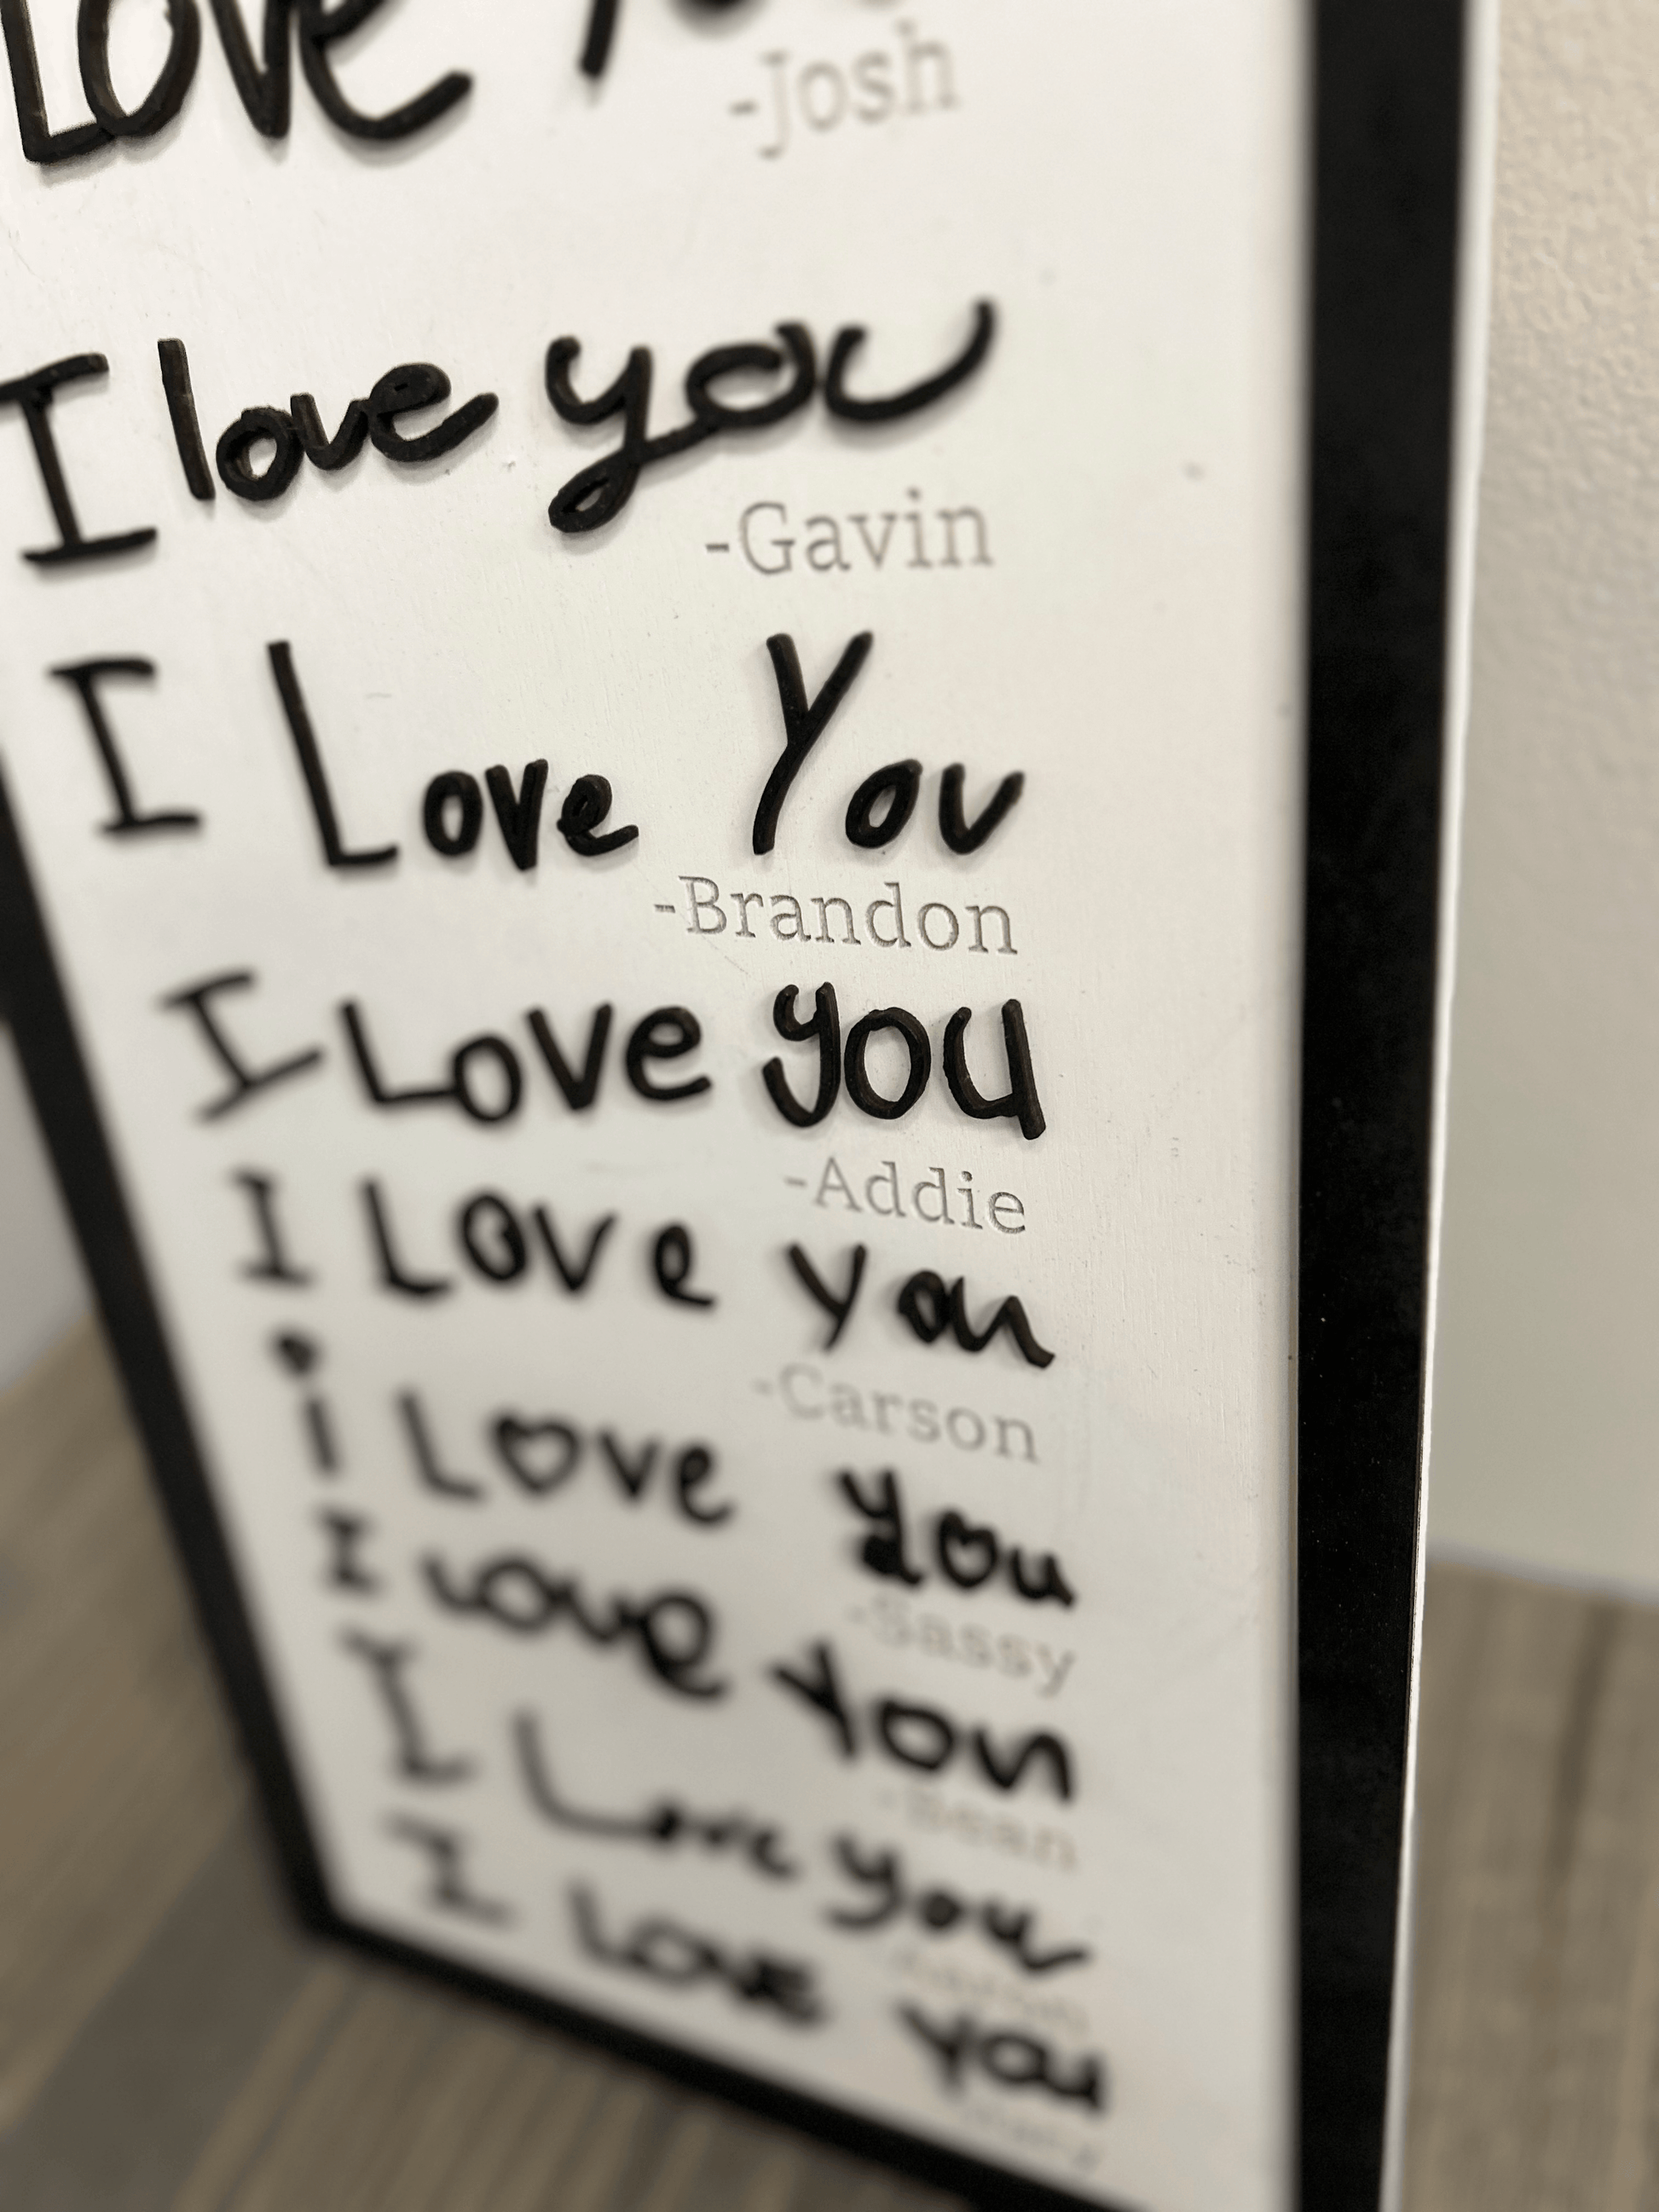 Love
-Josh
I love you
-Gavin
I Love You
-Brandon
I Love you
-Addie
I Love you
-Carson
i Love you
-Sassy
I Love You
-Bean
I Love you
I Love You